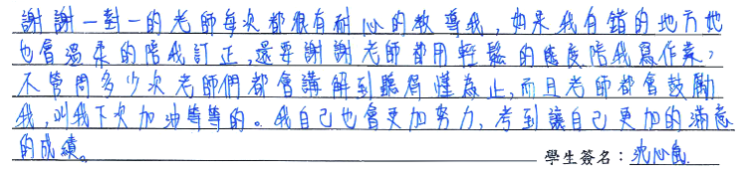 謝謝一對一的老師每次都很有耐心的教導我，如果我有錯的地方她
也會溫柔的陪我訂正，還要謝謝老師都用輕鬆的態度陪我寫作業，
不管問多少次老師們都會講解到聽得懂為止，而且老師都會鼓勵
我，叫我下次加油等等的。我自己也會更加努力，考到讓自己更加的滿意
的成績。 學生簽名：